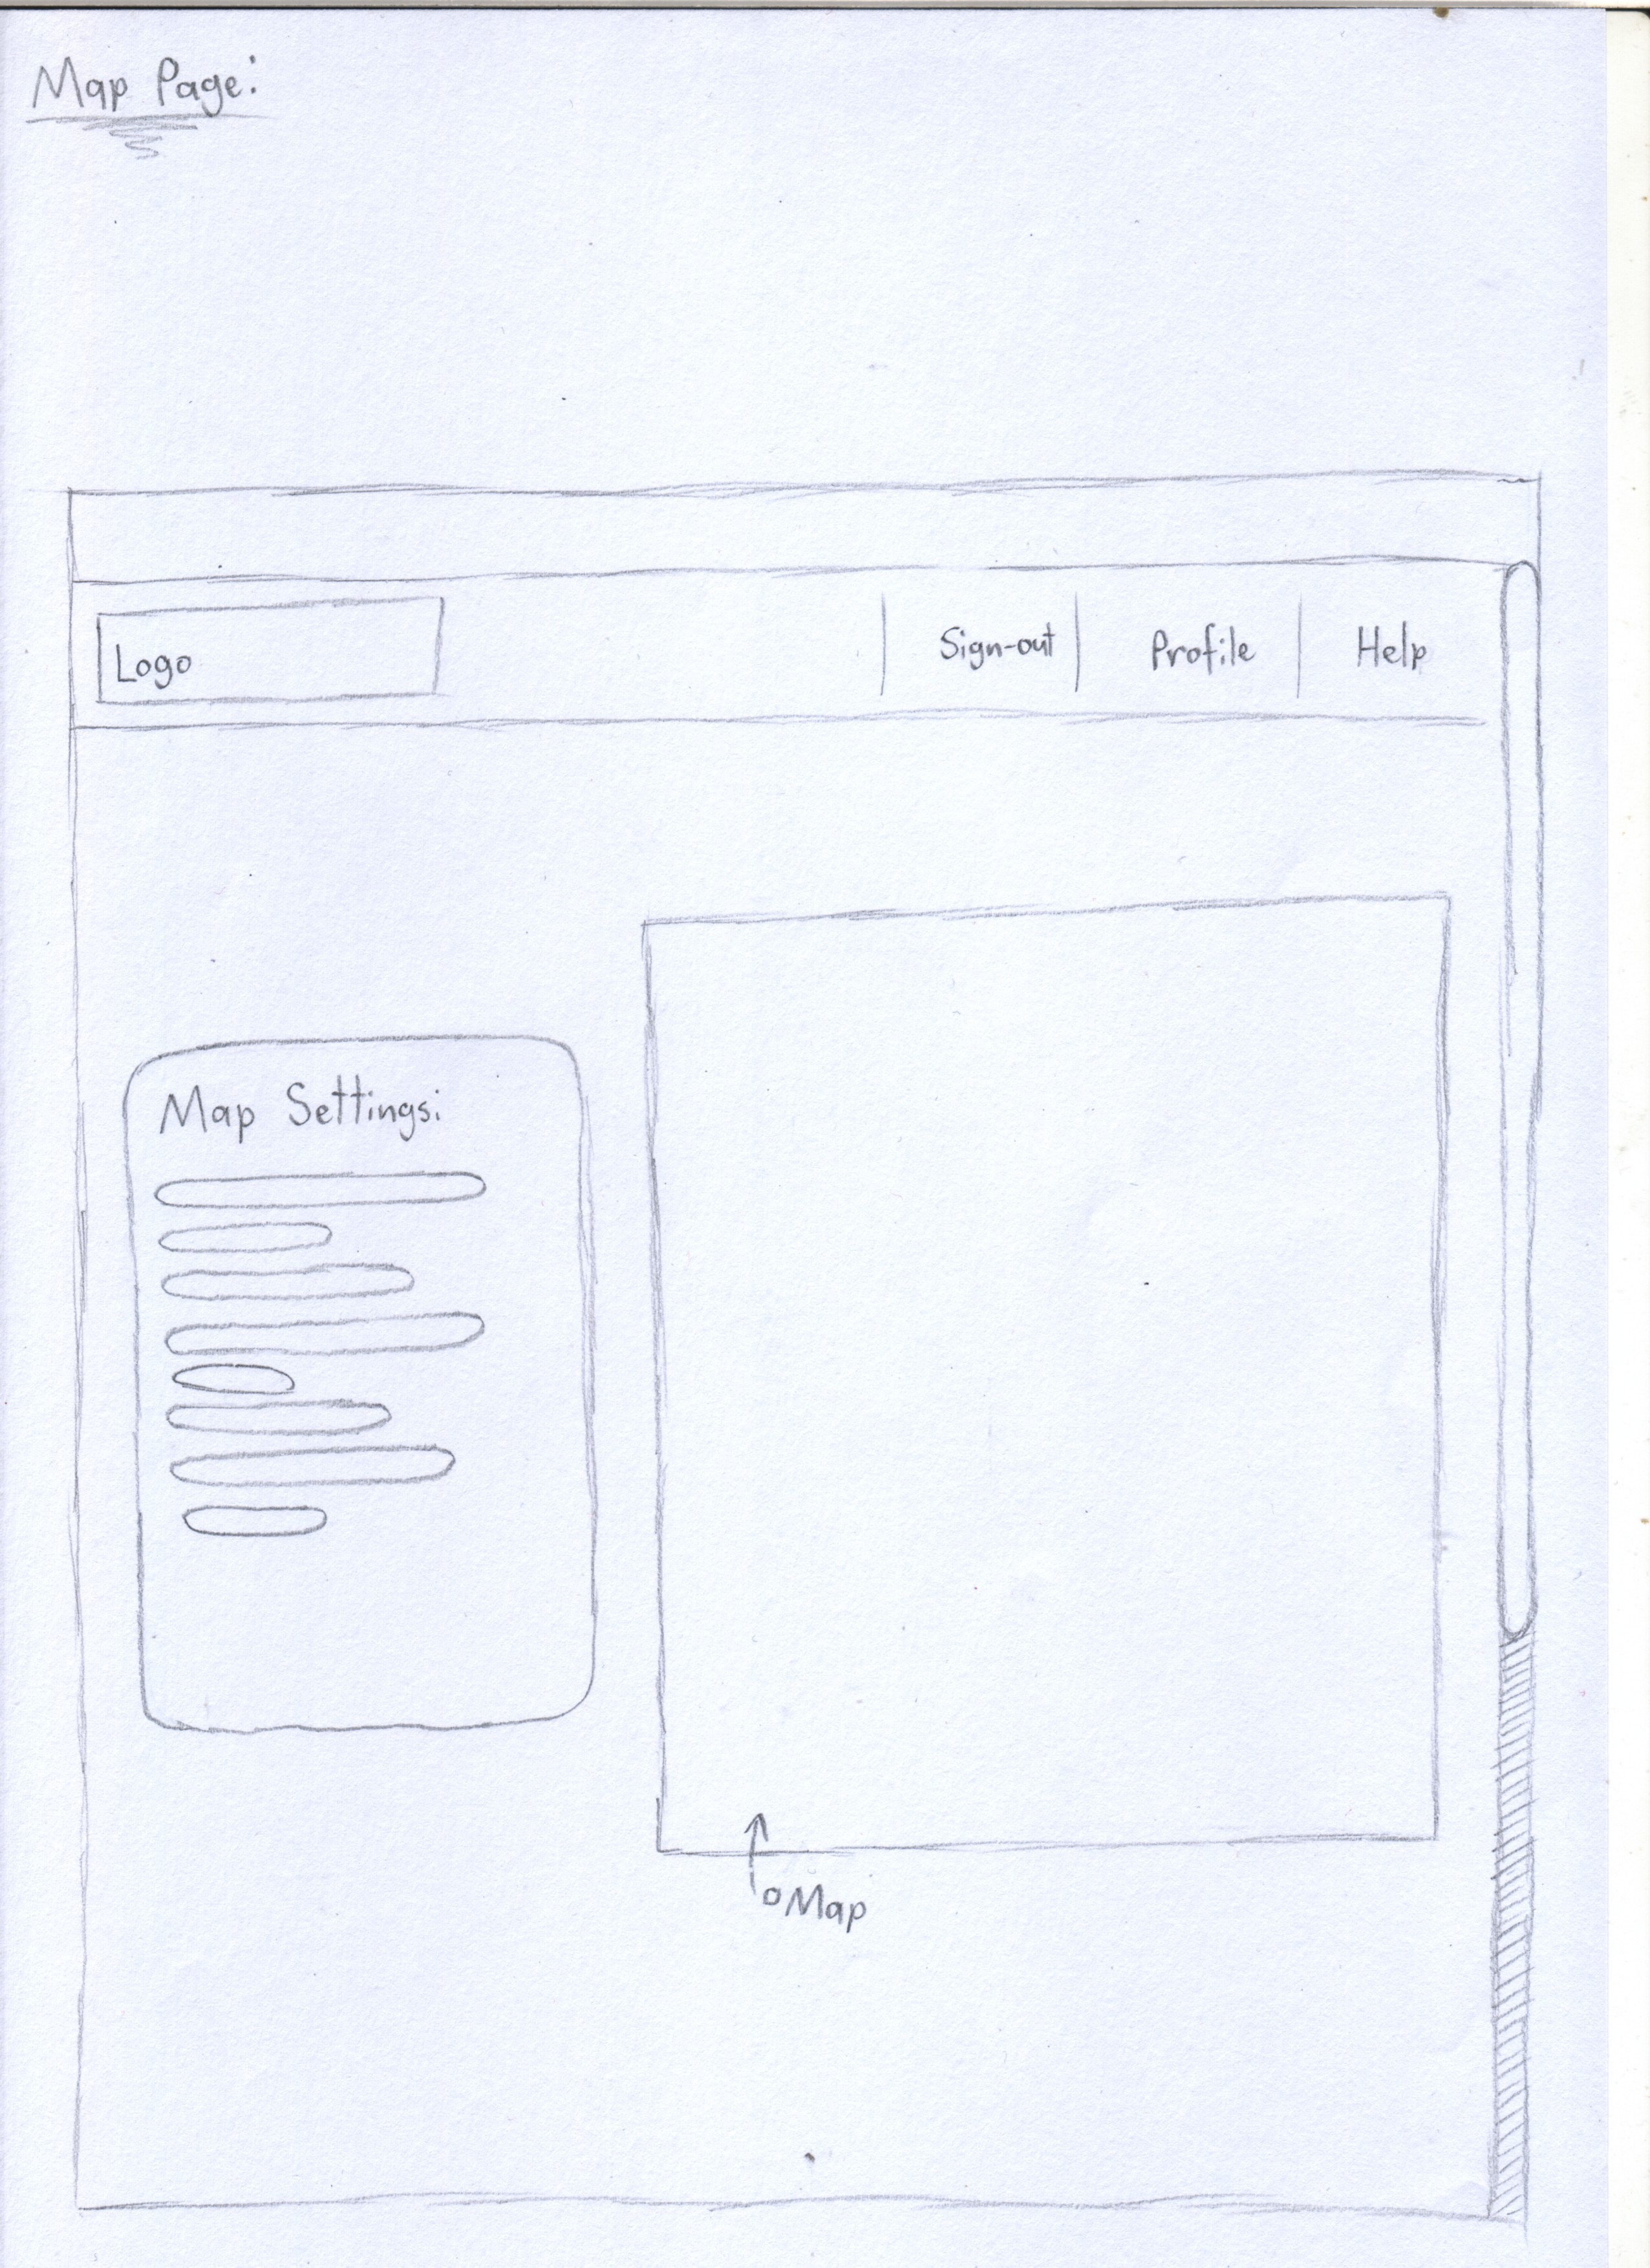 Map Page:
Logo
Sign-out
Profile
Help
Map Settings:
Map